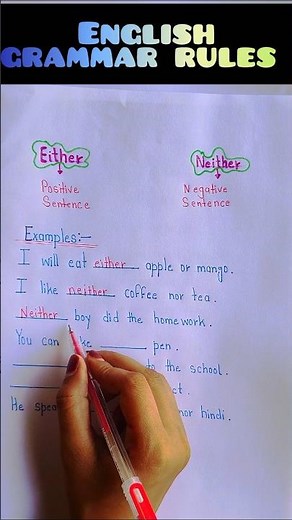 ENGLISH
GRAMMAR RULES
Either
Neither
Positive
Sentence
Negative
Sentence
Examples:-
I will eat either apple or mango.
I like neither coffee nor tea.
Neither boy did the homework.
You can ______ pen.
______ to the school.
He nor hindi.